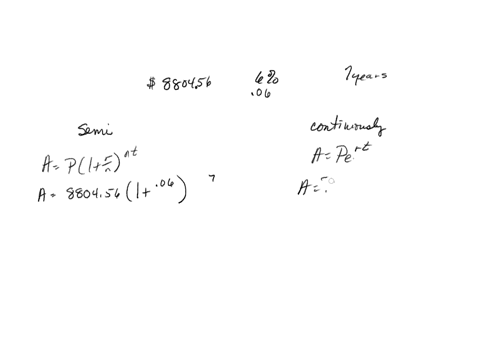 $ 8804.56 6% 7 years
.06
Semi continuously
A = P(1 + r/n)^nt A = Pe^rt
A = 8804.56 (1 + .06) 7 A =